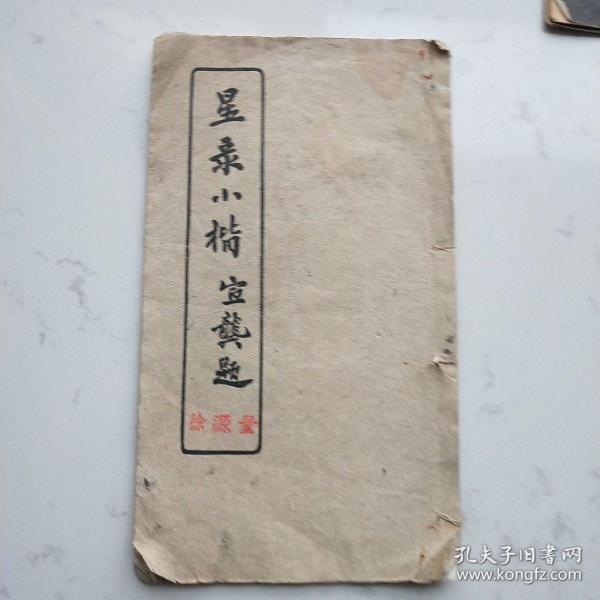 星录小楷 宣龔题
徐源量
孔夫子旧书网
www.kongfz.com